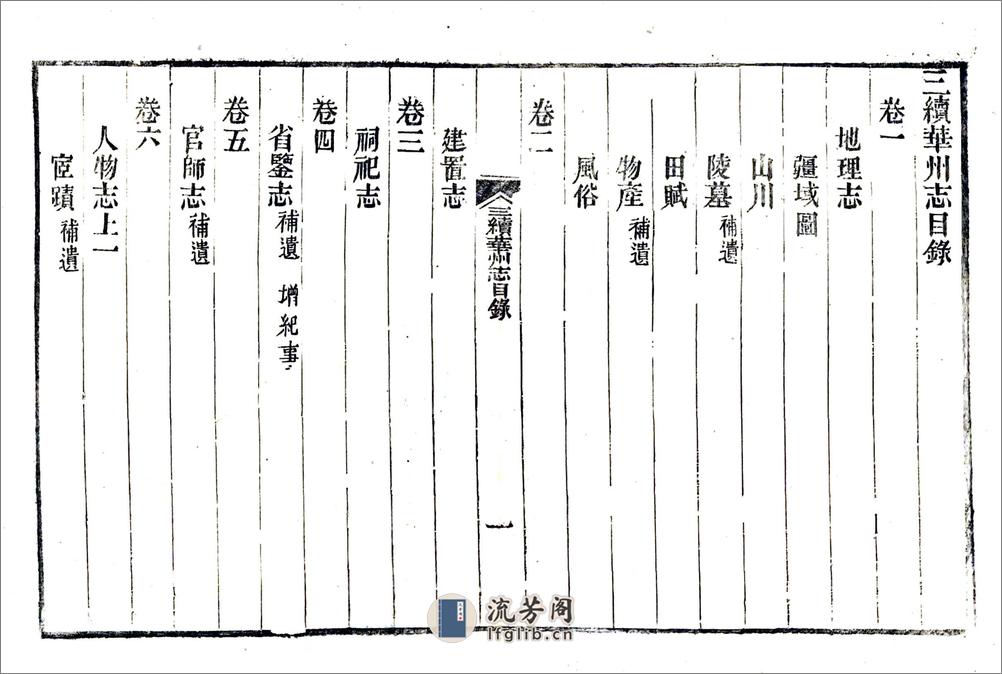 三續華州志目錄
卷一
地理志
疆域圖
山川
陵墓補遺
田賦
物產補遺
風俗
卷二
三續華州志目錄
一
建置志
卷三
祠祀志
卷四
省鑒志補遺 增紀事
卷五
官師志補遺
卷六
人物志上一
宦蹟補遺
流芳阁
lfglib.cn